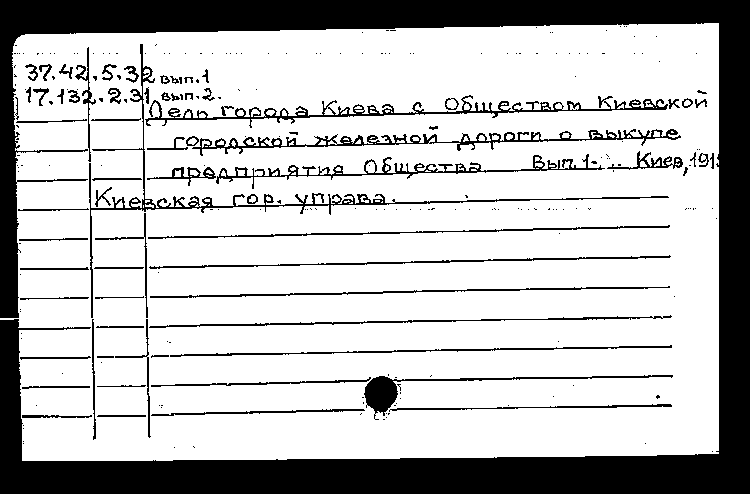 37.42.5.32 вып.1
17.132.2.31 вып.2.
Дело города Киева с Обществом Киевской
городской железной дороги о выкупе
предприятия Общества Вып.1-... Киев, 191
Киевская гор. управа.